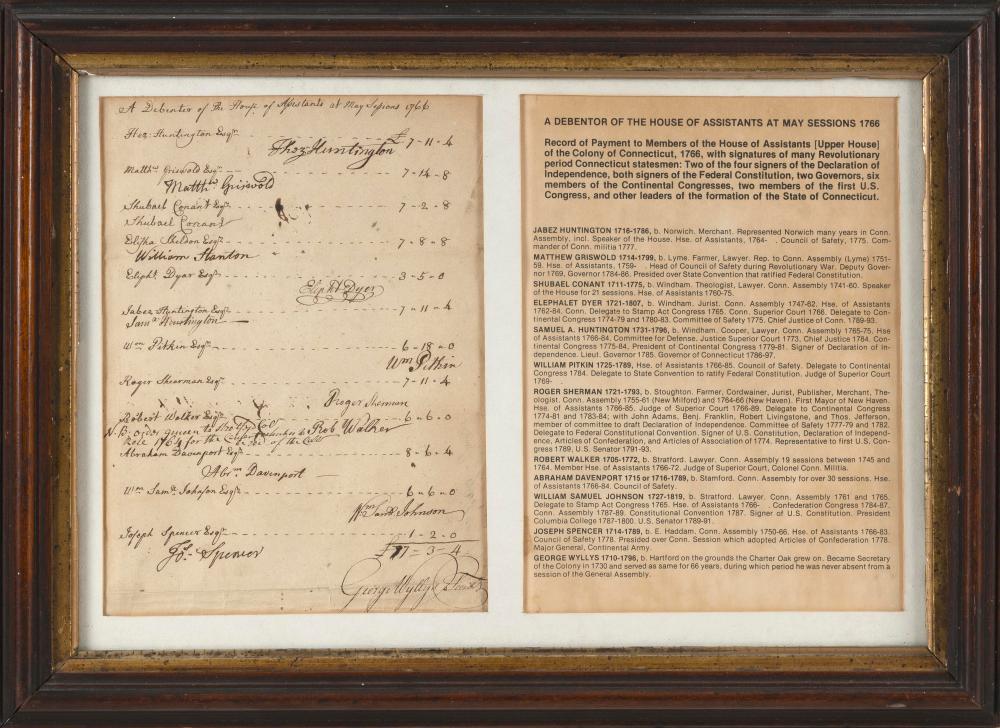 A Debenter of the House of Assistants at May Sessions 1766
Hez: Huntington Esqr £7-11-4
Hez Huntington
Matthw Griswold Esqr 7-14-8
Matthw Griswold
Shubael Conant Esqr 7-2-8
Shubael Conant
Elisha Sheldon Esqr 7-8-8
William Stanton
Elipht Dyar Esqr 3-5-0
Elipht Dyer
Jabez Huntington Esqr 7-11-4
Saml Huntington
Wm Pitkin Esqr 6-18-0
Wm Pitkin
Roger Shearman Esqr 7-11-4
Roger Sherman
Robert Walker Esqr 6-6-0
N.B. order given to
Rob Walker
1764 for the of the Coll
Abraham Davenport Esqr 8-6-4
Abrm Davenport
Wm Saml Johnson Esqr 6-6-0
Wm Saml Johnson
Joseph Spencer Esqr 1-2-0
Jos. Spencer
£77-3-4
George Wyllys
A DEBENTOR OF THE HOUSE OF ASSISTANTS AT MAY SESSIONS 1766
Record of Payment to Members of the House of Assistants [Upper House]
of the Colony of Connecticut, 1766, with signatures of many Revolutionary
period Connecticut statesmen: Two of the four signers of the Declaration of
Independence, both signers of the Federal Constitution, two Governors, six
members of the Continental Congresses, two members of the first U.S.
Congress, and other leaders of the formation of the State of Connecticut.
JABEZ HUNTINGTON 1716-1786, b. Norwich. Merchant. Represented Norwich many years in Conn.
Assembly, incl. Speaker of the House. Hse. of Assistants, 1764- . Council of Safety, 1775. Com-
mander of Conn. militia 1777.
MATTHEW GRISWOLD 1714-1799, b. Lyme. Farmer, Lawyer. Rep. to Conn. Assembly (Lyme) 1751-
59. Hse. of Assistants, 1759- . Head of Council of Safety during Revolutionary War. Deputy Gover-
nor 1769, Governor 1784-86. Presided over State Convention that ratified Federal Constitution.
SHUBAEL CONANT 1711-1775, b. Windham. Theologist, Lawyer. Conn. Assembly 1741-60. Speaker
of the House for 21 sessions. Hse. of Assistants 1760-75.
ELEPHALET DYER 1721-1807, b. Windham. Jurist. Conn. Assembly 1747-62. Hse. of Assistants
1762-84. Conn. Delegate to Stamp Act Congress 1765. Conn. Superior Court 1766. Delegate to Con-
tinental Congress 1774-79 and 1780-83. Committee of Safety 1775. Chief Justice of Conn. 1789-93.
SAMUEL A. HUNTINGTON 1731-1796, b. Windham. Cooper, Lawyer. Conn. Assembly 1765-75. Hse
of Assistants 1766-84. Committee for Defense. Justice Superior Court 1773, Chief Justice 1784. Con-
tinental Congress 1775-84, President of Continental Congress 1779-81. Signer of Declaration of In-
dependence. Lieut. Governor 1785. Governor of Connecticut 1786-97.
WILLIAM PITKIN 1725-1789, Hse. of Assistants 1766-85. Council of Safety. Delegate to Continental
Congress 1784. Delegate to State Convention to ratify Federal Constitution. Judge of Superior Court
1769- .
ROGER SHERMAN 1721-1793, b. Stoughton. Farmer, Cordwainer, Jurist, Publisher, Merchant, The-
ologist. Conn. Assembly 1755-61 (New Milford) and 1764-66 (New Haven). First Mayor of New Haven.
Hse. of Assistants 1766-85. Judge of Superior Court 1766-89. Delegate to Continental Congress
1774-81 and 1783-84; with John Adams, Benj. Franklin, Robert Livingstone, and Thos. Jefferson,
member of committee to draft Declaration of Independence. Committee of Safety 1777-79 and 1782.
Delegate to Federal Constitutional Convention. Signer of U.S. Constitution, Declaration of Independ-
ence, Articles of Confederation, and Articles of Association of 1774. Representative to first U.S. Con-
gress 1789, U.S. Senator 1791-93.
ROBERT WALKER 1705-1772, b. Stratford. Lawyer. Conn. Assembly 19 sessions between 1745 and
1764. Member Hse. of Assistants 1766-72. Judge of Superior Court, Colonel Conn. Militia.
ABRAHAM DAVENPORT 1715 or 1716-1789, b. Stamford. Conn. Assembly for over 30 sessions. Hse.
of Assistants 1766-84. Council of Safety.
WILLIAM SAMUEL JOHNSON 1727-1819, b. Stratford. Lawyer. Conn. Assembly 1761 and 1765.
Delegate to Stamp Act Congress 1765. Hse. of Assistants 1766- . Confederation Congress 1784-87.
Conn. Assembly 1787-89. Constitutional Convention 1787. Signer of U.S. Constitution. President
Columbia College 1787-1800. U.S. Senator 1789-91.
JOSEPH SPENCER 1714-1789, b. E. Haddam. Conn. Assembly 1750-66. Hse. of Assistants 1766-83.
Council of Safety 1778. Presided over Conn. Session which adopted Articles of Confederation 1778.
Major General, Continental Army.
GEORGE WYLLYS 1710-1796, b. Hartford on the grounds the Charter Oak grew on. Became Secretary
of the Colony in 1730 and served as same for 66 years, during which period he was never absent from a
session of the General Assembly.